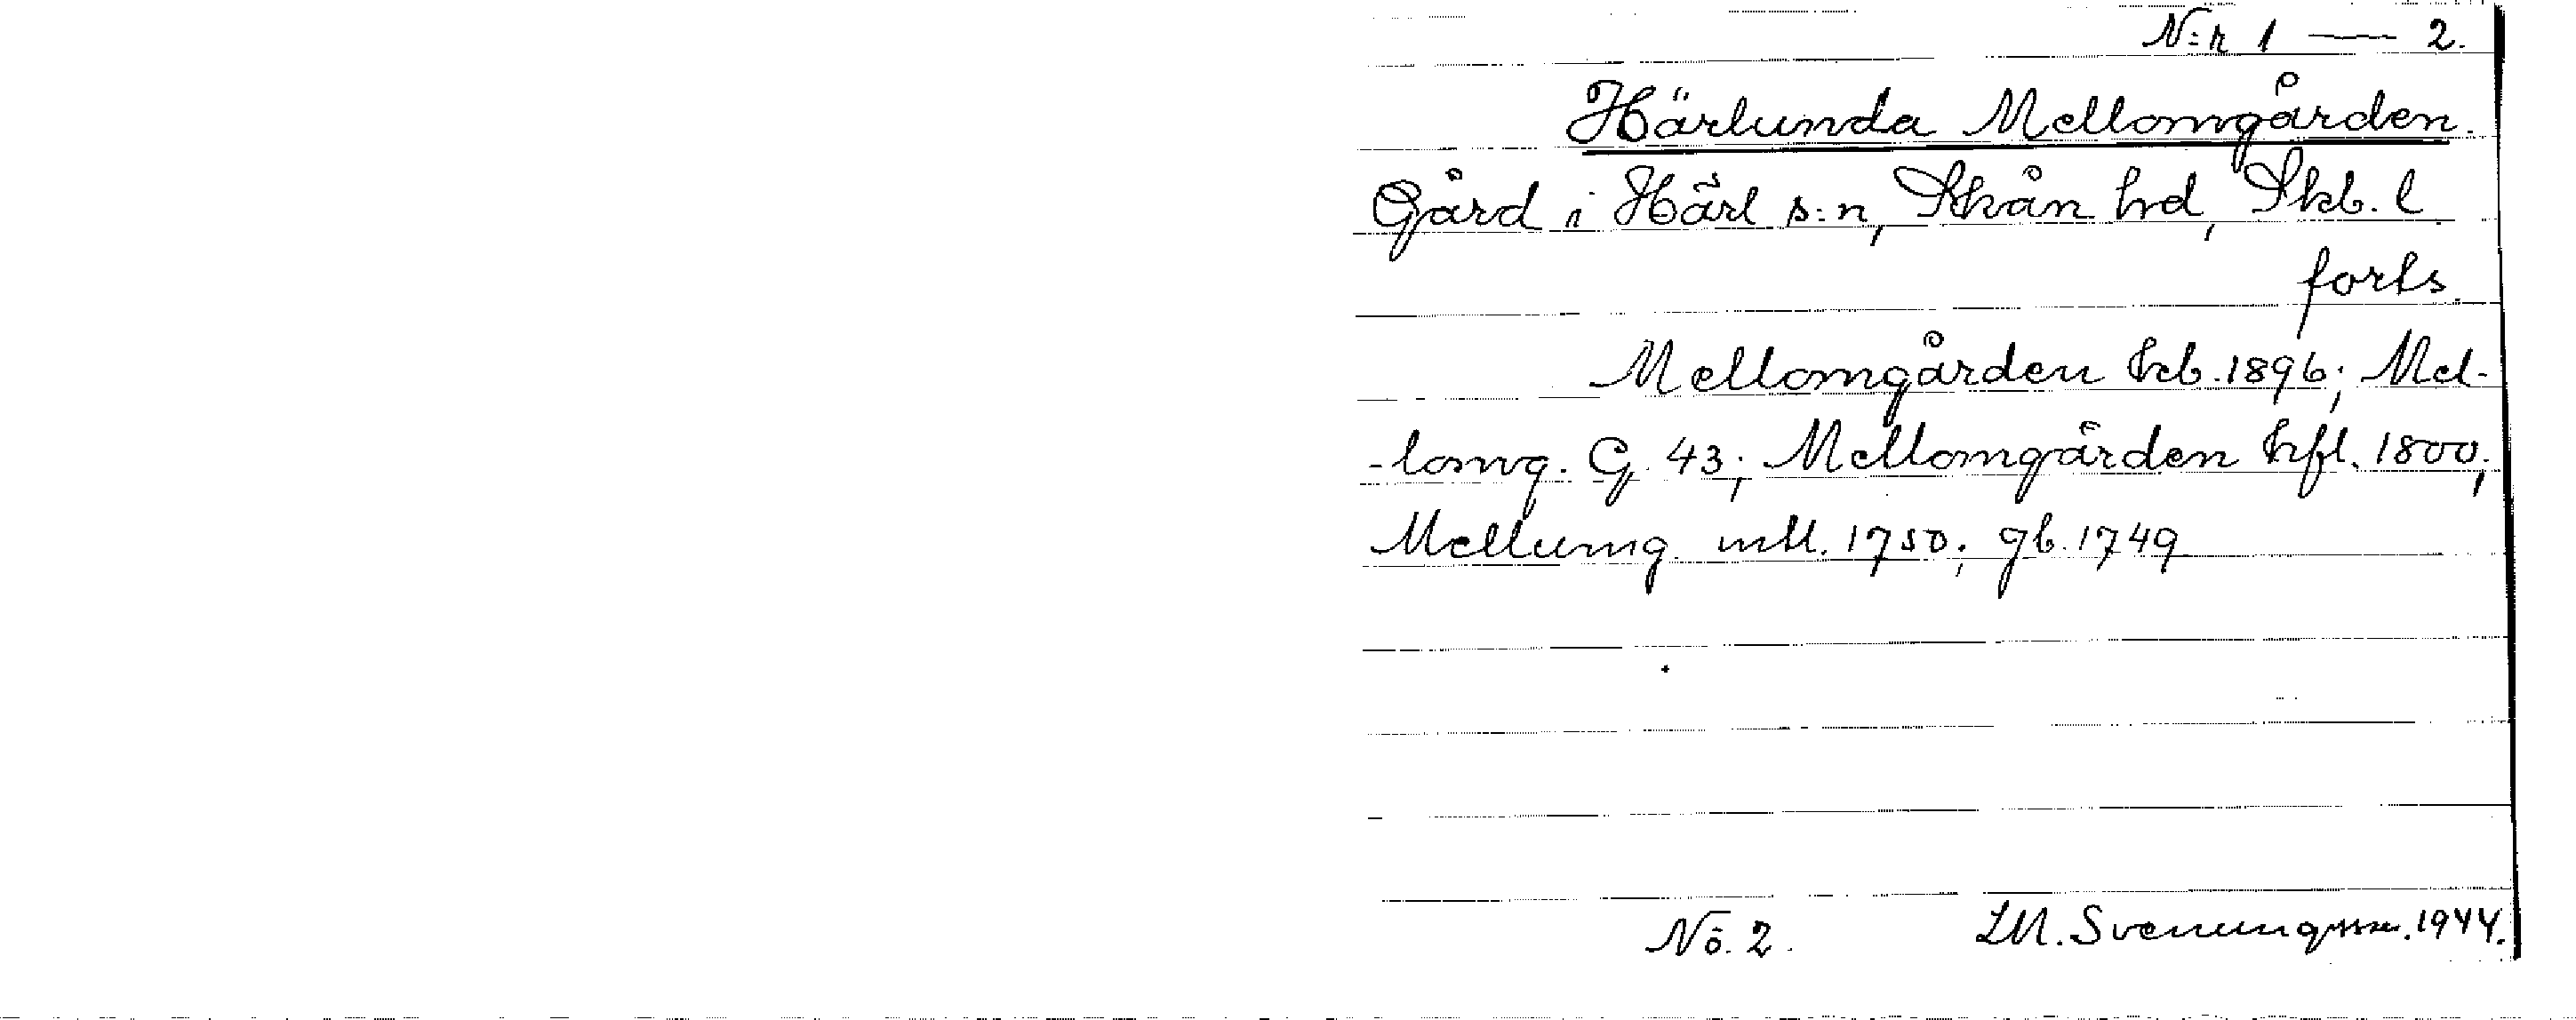 N:r 1 — 2.
Härlunda Mellomgården.
Gård i Härl s:n, Skån hd, Skb. l.
forts.
Mellomgården kb. 1896; Mel-
-lomg. G. 43; Mellomgården hfl. 1800;
Mellumg. mtl. 1750; gb. 1749
No. 2. LM. Svenungsson. 1944.